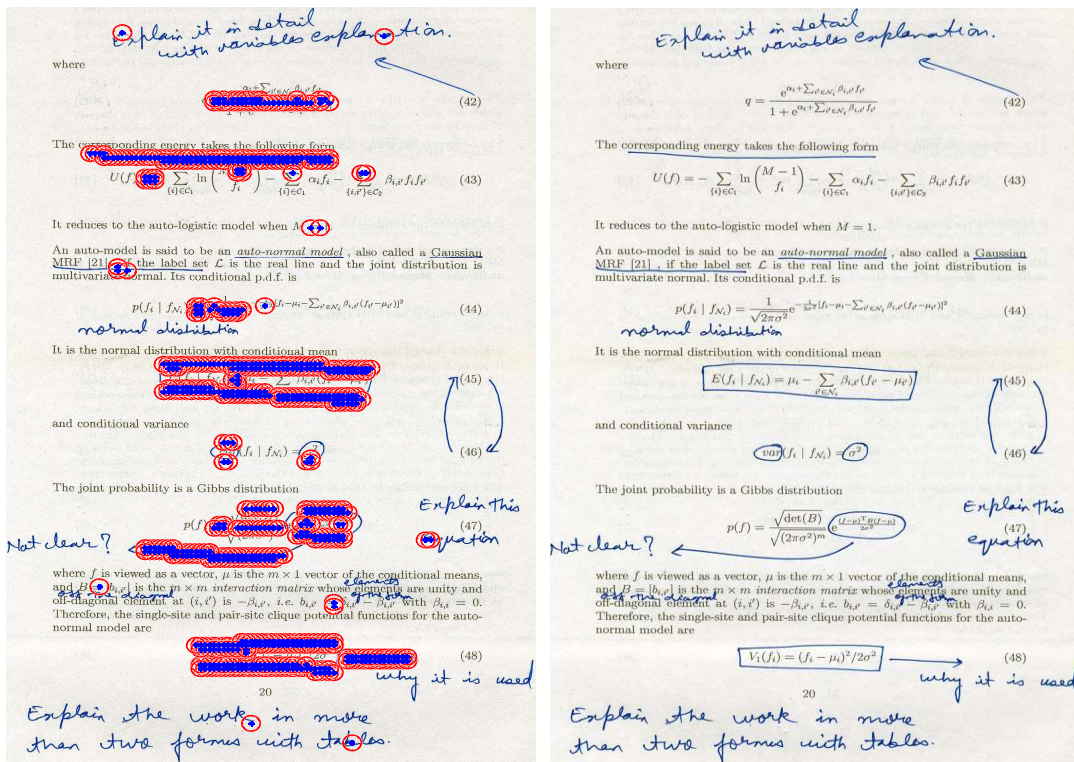 Explain it in detail
with variables explanation.
where
(42)
The corresponding energy takes the following form
U(f) ∑_{{i}∈C₁} ln ( f_i ) − ∑_{{i}∈C₁} α_i f_i − ∑_{{i,i'}∈C₂} β_{i,i'} f_i f_{i'} (43)
It reduces to the auto-logistic model when
An auto-model is said to be an auto-normal model, also called a Gaussian
MRF [21], if the label set ℒ is the real line and the joint distribution is
multivariate normal. Its conditional p.d.f. is
p(f_i | f_{N_i}) [f_i−μ_i−∑_{i'∈N_i} β_{i,i'}(f_{i'}−μ_{i'})]² (44)
normal distribution
It is the normal distribution with conditional mean
(45)
and conditional variance
(f_i | f_{N_i}) = σ² (46)
The joint probability is a Gibbs distribution
Explain this
p(f) (47)
equation
Not clear?
where f is viewed as a vector, μ is the m × 1 vector of the conditional means,
elements
and B = [b_{i,i'}] is the m × m interaction matrix whose elements are unity and
off the diagonal of the form
off-diagonal element at (i, i') is −β_{i,i'}, i.e. b_{i,i'} = δ_{i,i'} − β_{i,i'} with β_{i,i} = 0.
Therefore, the single-site and pair-site clique potential functions for the auto-
normal model are
(48)
why it is used
20
Explain the work in more
than two formes with tables.
Explain it in detail
with variables explanation.
where
q = e^{α_i+∑_{i'∈N_i} β_{i,i'} f_{i'}} / (1 + e^{α_i+∑_{i'∈N_i} β_{i,i'} f_{i'}}) (42)
The corresponding energy takes the following form
U(f) = − ∑_{{i}∈C₁} ln (M − 1 f_i) − ∑_{{i}∈C₁} α_i f_i − ∑_{{i,i'}∈C₂} β_{i,i'} f_i f_{i'} (43)
It reduces to the auto-logistic model when M = 1.
An auto-model is said to be an auto-normal model, also called a Gaussian
MRF [21], if the label set ℒ is the real line and the joint distribution is
multivariate normal. Its conditional p.d.f. is
p(f_i | f_{N_i}) = 1/√(2πσ²) e^{−1/(2σ²)[f_i−μ_i−∑_{i'∈N_i} β_{i,i'}(f_{i'}−μ_{i'})]²} (44)
normal distribution
It is the normal distribution with conditional mean
E(f_i | f_{N_i}) = μ_i − ∑_{i'∈N_i} β_{i,i'}(f_{i'} − μ_{i'}) (45)
and conditional variance
var(f_i | f_{N_i}) = σ² (46)
The joint probability is a Gibbs distribution
Explain this
p(f) = √det(B) / √((2πσ²)^m) e^{(f−μ)^T B(f−μ) / 2σ²} (47)
equation
Not clear?
where f is viewed as a vector, μ is the m × 1 vector of the conditional means,
elements
and B = [b_{i,i'}] is the m × m interaction matrix whose elements are unity and
off the diagonal of the form
off-diagonal element at (i, i') is −β_{i,i'}, i.e. b_{i,i'} = δ_{i,i'} − β_{i,i'} with β_{i,i} = 0.
Therefore, the single-site and pair-site clique potential functions for the auto-
normal model are
V₁(f_i) = (f_i − μ_i)²/2σ² (48)
why it is used
20
Explain the work in more
than two formes with tables.